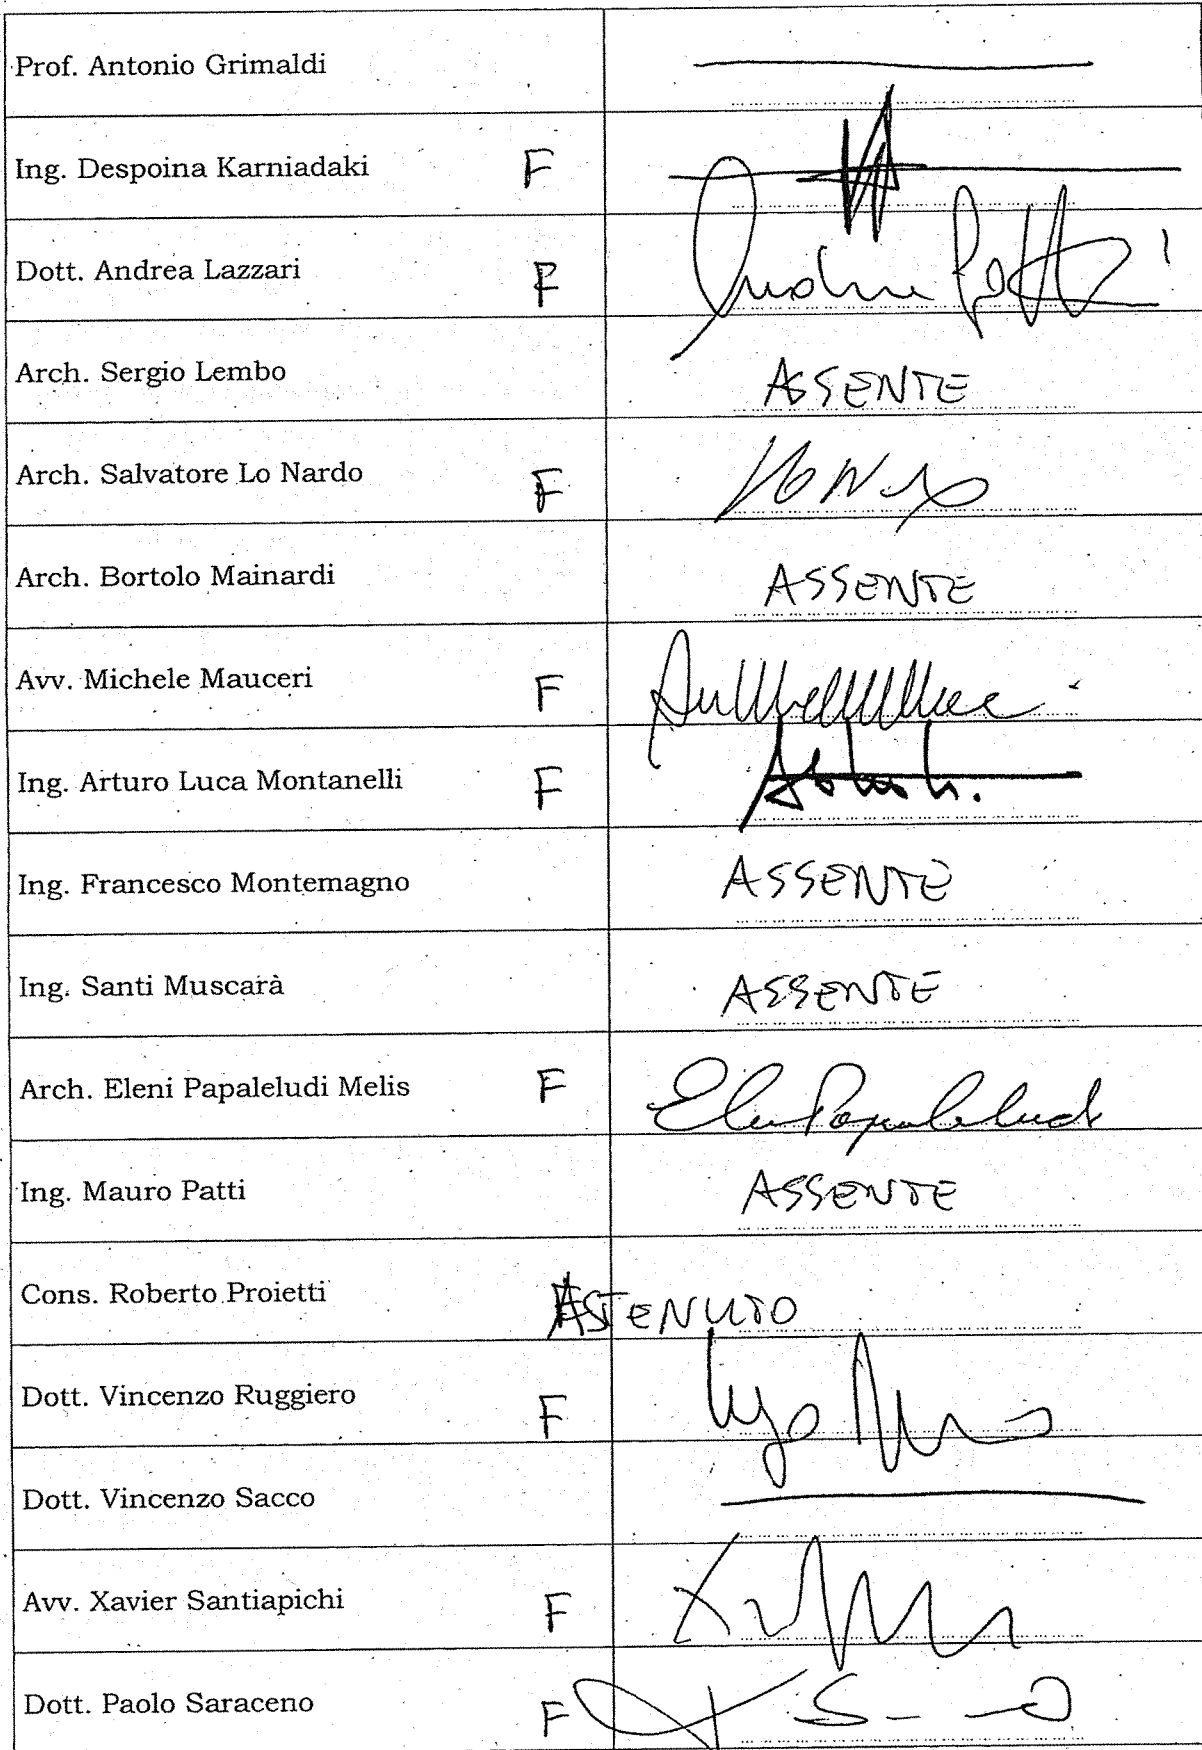 Prof. Antonio Grimaldi
Ing. Despoina Karniadaki F
Dott. Andrea Lazzari F
Arch. Sergio Lembo ASSENTE
Arch. Salvatore Lo Nardo F
Arch. Bortolo Mainardi ASSENTE
Avv. Michele Mauceri F
Ing. Arturo Luca Montanelli F
Ing. Francesco Montemagno ASSENTE
Ing. Santi Muscarà ASSENTE
Arch. Eleni Papaleludi Melis F
Ing. Mauro Patti ASSENTE
Cons. Roberto Proietti ASTENUTO
Dott. Vincenzo Ruggiero F
Dott. Vincenzo Sacco
Avv. Xavier Santiapichi F
Dott. Paolo Saraceno F